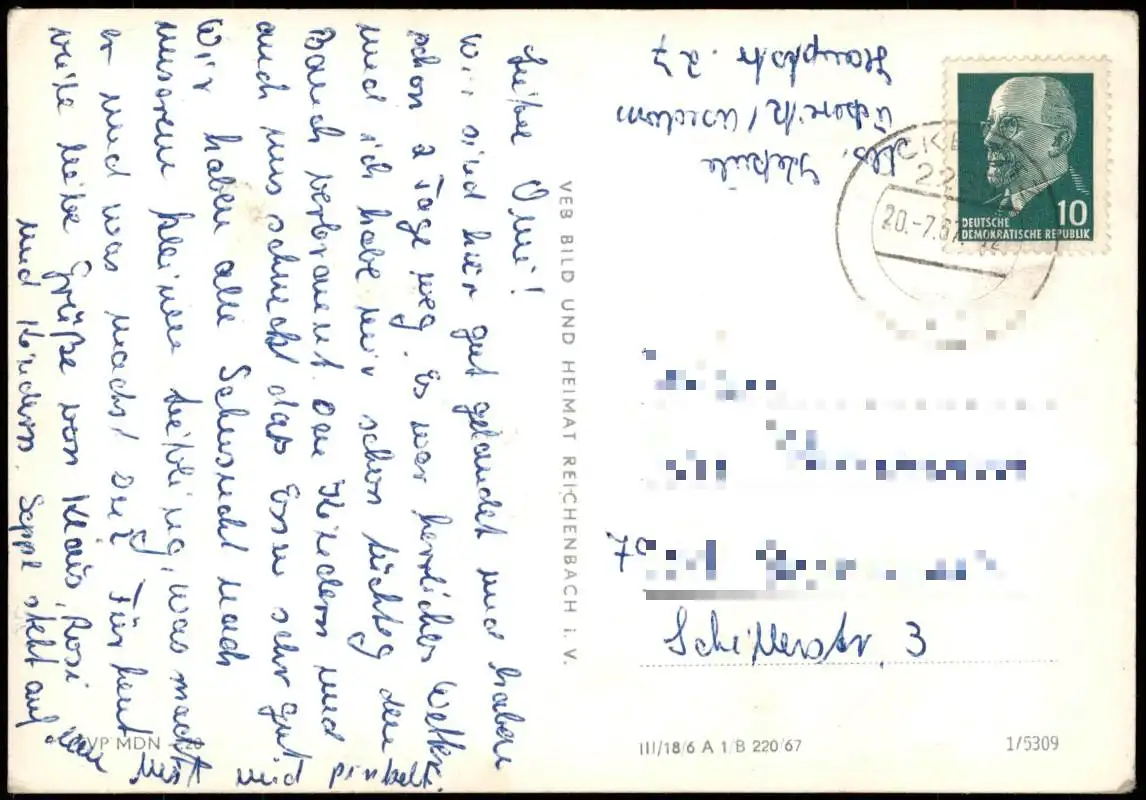 Liebe Omi!
Wir sind hier gut gelandet und haben
schon 2 Tage weg. Es war herrliches Wetter
und ich habe mir schon tüchtig den
Bauch verbrannt. Den Kindern und
auch uns schmeckt das Essen sehr gut
Wir haben alle Sehnsucht nach
unserem kleinen Liebling, was macht
er und was machst Du? Für heut
viele liebe Grüße von Klaus, Rosi
und Kindern. Seppl steht auf dem
Mist und pinkelt.
VEB BILD UND HEIMAT REICHENBACH i. V.
EVP MDN
Abs.
Ückeritz/Usedom
Hauptstr. 27
20.-7.67
10
DEUTSCHE
DEMOKRATISCHE REPUBLIK
Schillerstr. 3
III/18/6 A 1/B 220/67
1/5309